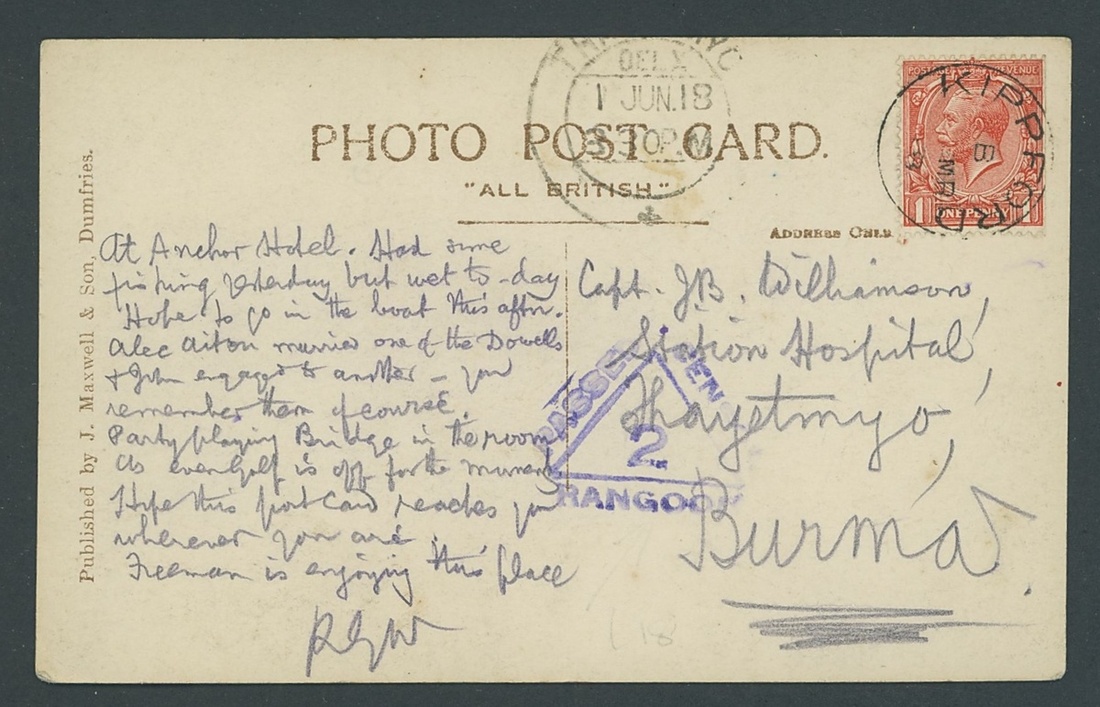 PHOTO POST CARD.
"ALL BRITISH."
ADDRESS ONLY.
Published by J. Maxwell & Son, Dumfries.
DELY
1 JUN.18
3.30P.M
POSTAGE REVENUE
1 ONE PENNY 1
KIPPFORD
At Anchor Hotel. Had some
fishing yesterday but wet to-day
Hope to go in the boat this aftn.
Alec Aiton married one of the Dowells
& John engaged to another - you
remember them of course.
Party playing Bridge in the room
as even Golf is off for the moment
Hope this post card reaches you
wherever you are.
Freeman is enjoying this place
RGW
Capt. J.B. Williamson,
Station Hospital,
Thayetmyo,
Burma.
PASSED CEN
2
RANGOON